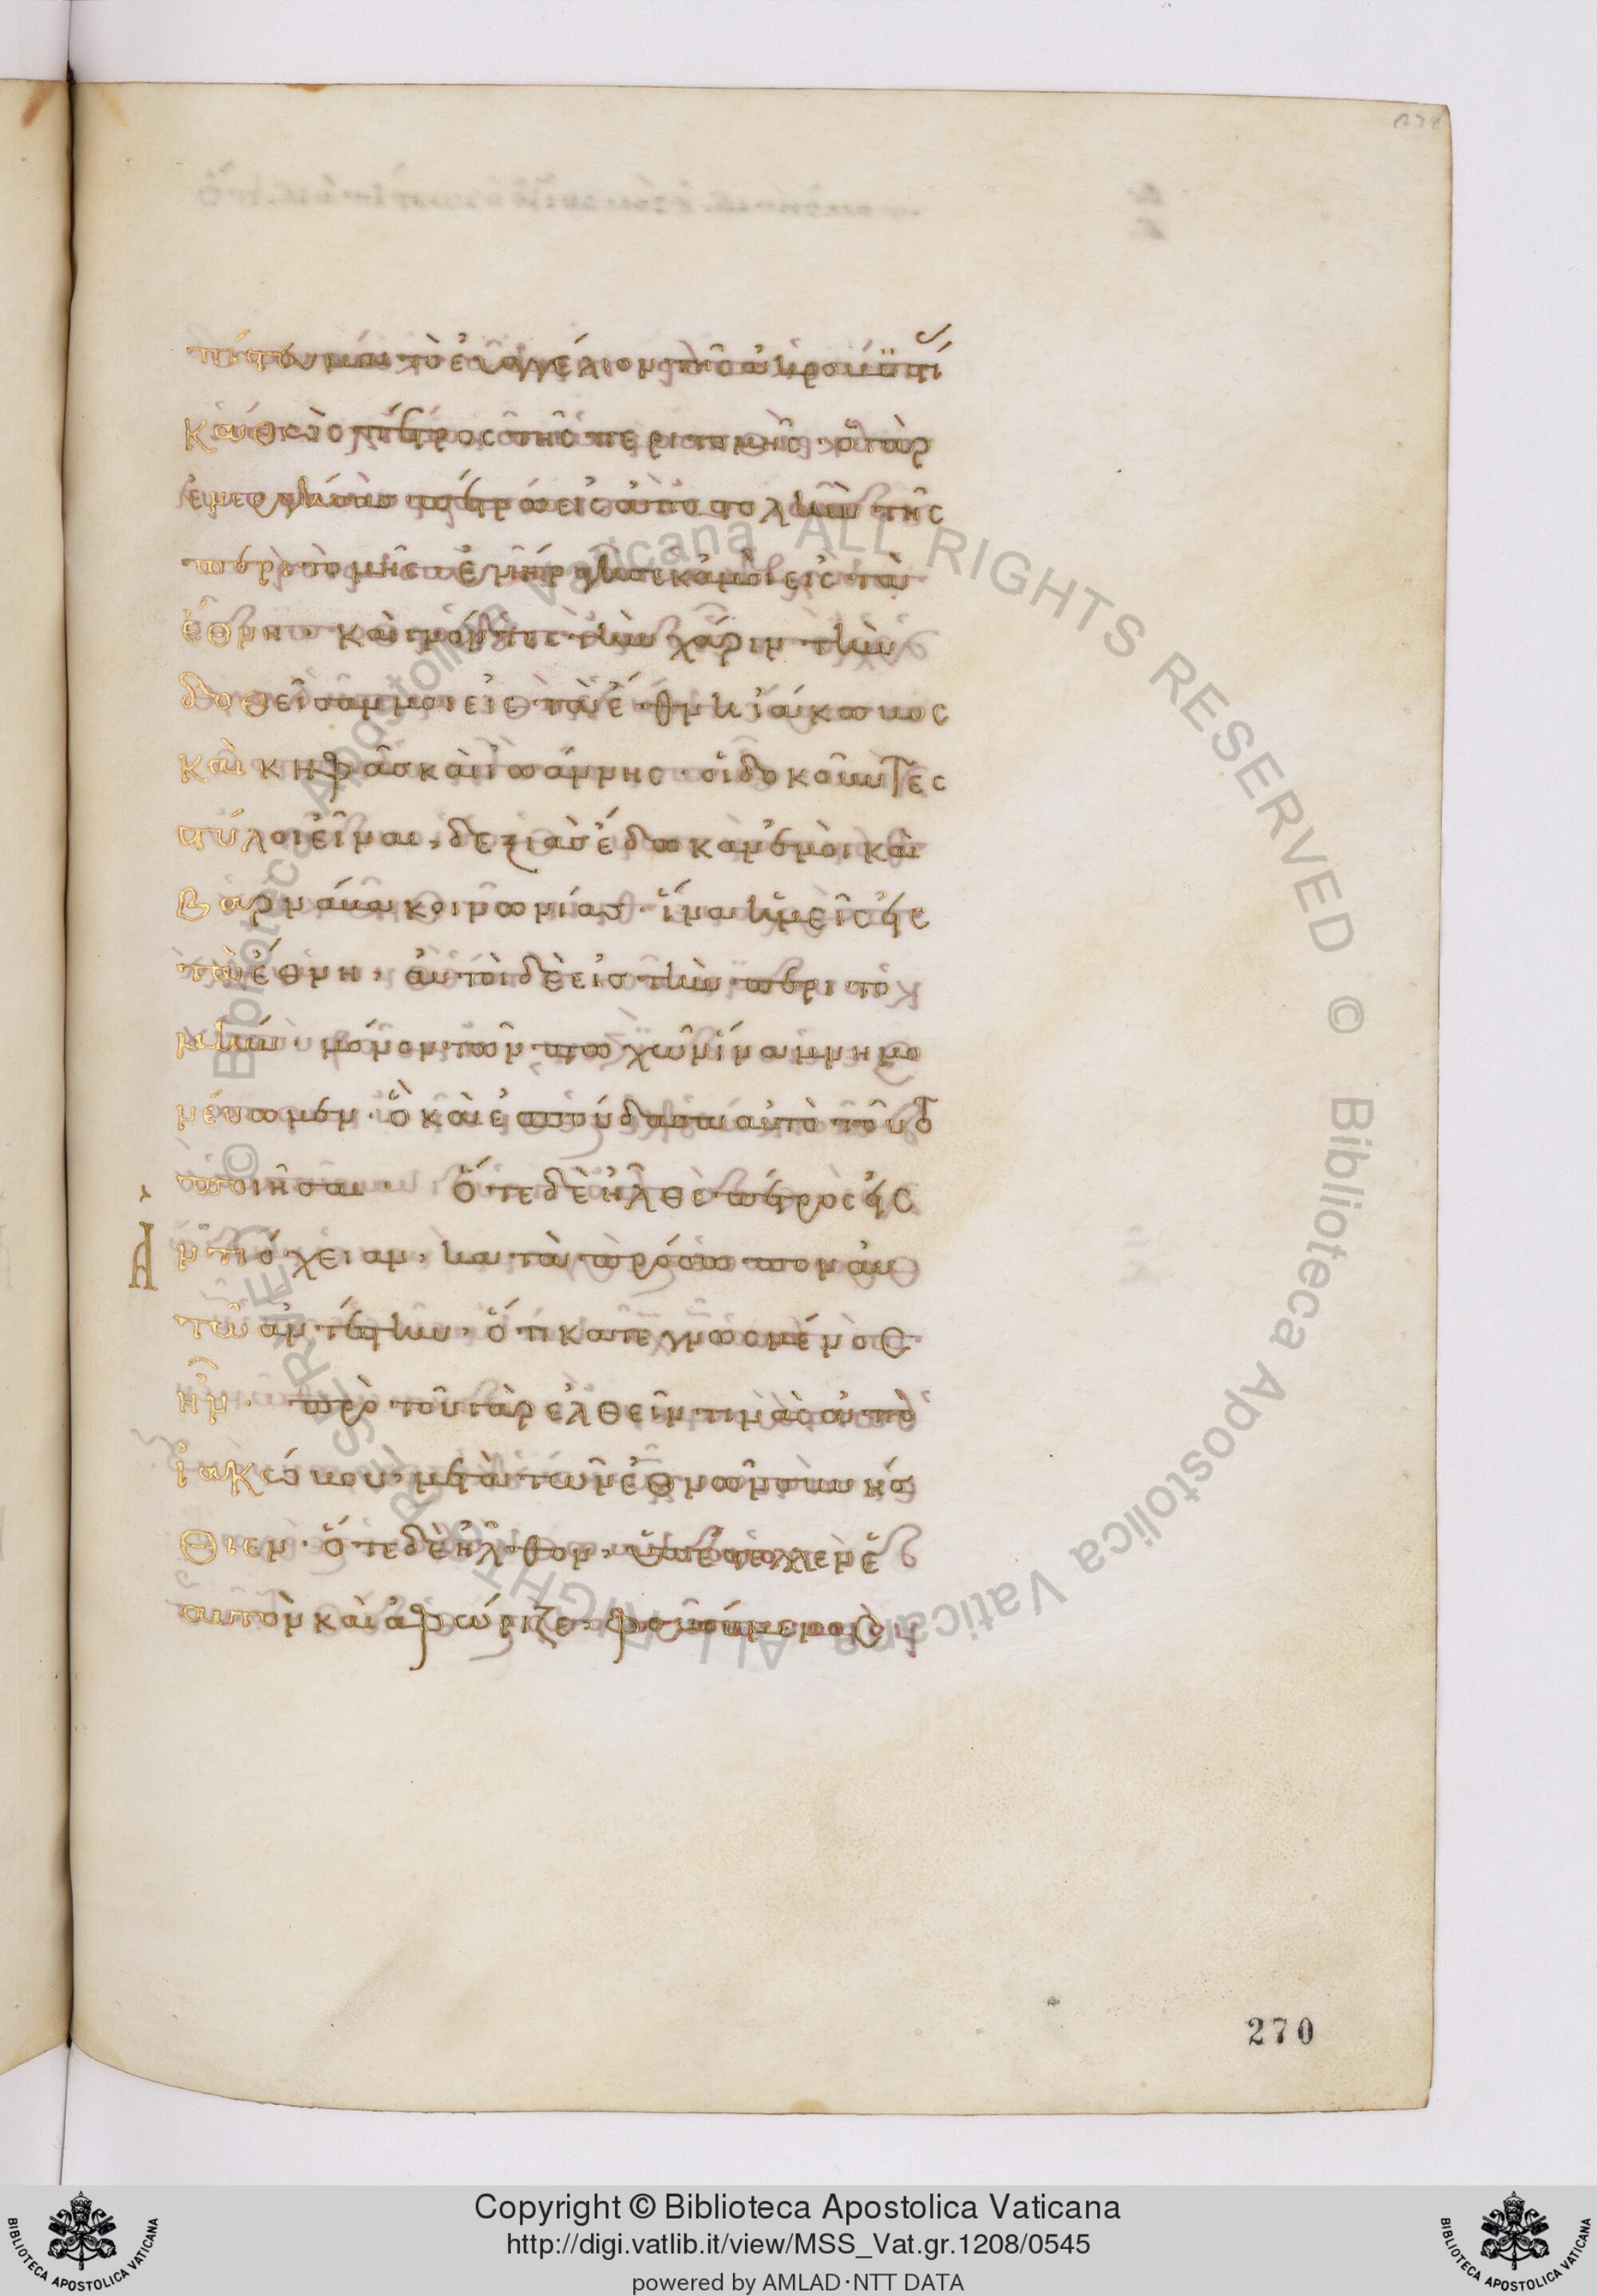 πίστευμαι τὸ εὐαγγέλιον τῆς ἀκροβυστί
καθὼς πέτρος τῆς περιτομῆς· ὁ γὰρ
ἐνεργήσας πέτρω εἰς ἀποστολὴν τῆς
περιτομῆς ἐνήργησε κἀμοὶ εἰς τὰ
ἔθνη· καὶ γνόντες τὴν χάριν τὴν
δοθεῖσαν μοι εἰς τὰ ἔθνη ἰάκωβος
καὶ κηφᾶς καὶ ἰωάννης· οἱ δοκοῦντες
στύλοι εἶναι, δεξιὰς ἔδωκαν ἐμοὶ καὶ
βαρνάβα κοινωνίας· ἵνα ἡμεῖς εἰς
τὰ ἔθνη, αὐτοὶ δὲ εἰς τὴν περιτο
μήν· μόνον τῶν πτωχῶν ἵνα μνημο
νεύωμεν· ὃ καὶ ἐσπούδασα αὐτὸ τοῦτο
ποιῆσαι· ὅτε δὲ ἦλθε πέτρος εἰς
Ἀ ντιόχειαν, κατὰ πρόσωπον αὐ
τῶ ἀντέστην, ὅτι κατεγνωσμένος
ἦν· πρὸ τοῦ γὰρ ἐλθεῖν τινὰς ἀπὸ
ἰακώβου, μετὰ τῶν ἐθνῶν συνήσ
θιεν· ὅτε δὲ ἦλθον, ὑπέστελλεν ἑ
αυτὸν καὶ ἀφώριζε, φοβούμενος
270
© Biblioteca Apostolica Vaticana ALL RIGHTS RESERVED © Biblioteca Apostolica Vaticana ALL RIGHTS RESERVED
Copyright © Biblioteca Apostolica Vaticana
http://digi.vatlib.it/view/MSS_Vat.gr.1208/0545
powered by AMLAD·NTT DATA
BIBLIOTECA APOSTOLICA VATICANA
BIBLIOTECA APOSTOLICA VATICANA